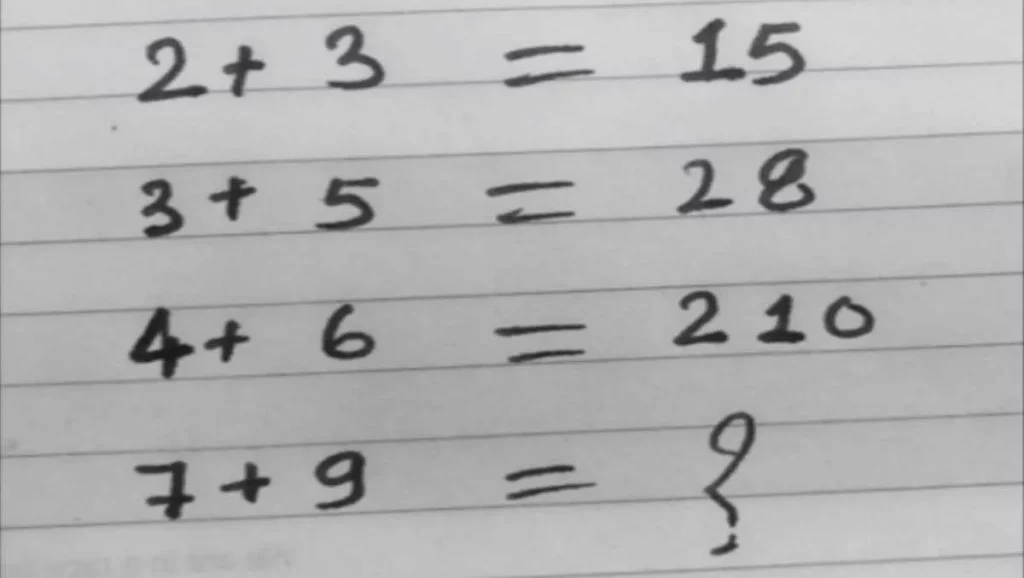 2 + 3 = 15
3 + 5 = 28
4 + 6 = 210
7 + 9 = ?